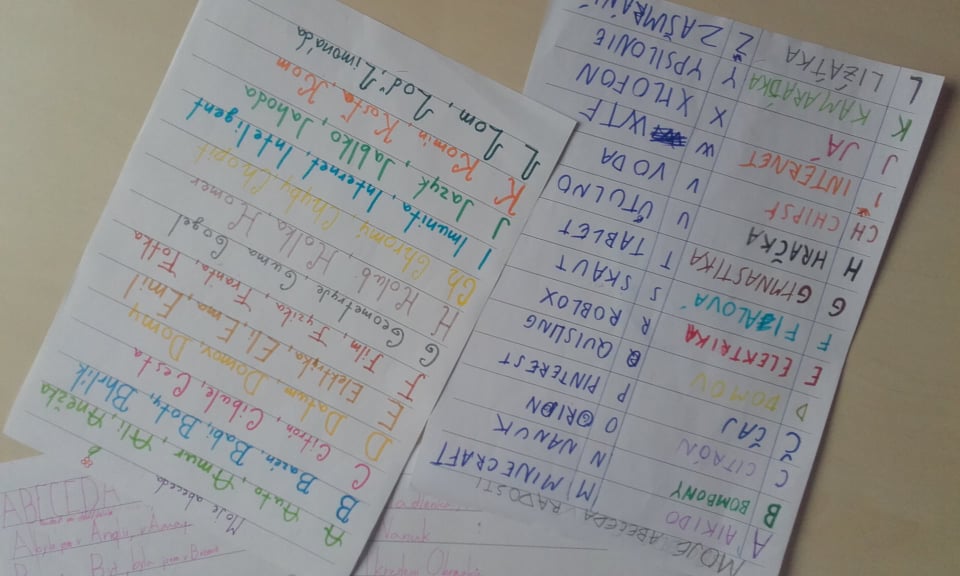 Moje abeceda
A Auto, Amur, Ali, Anežka
B Bazén, Babi, Boty, Bhrlík
C Citrón, Cibule, Cesta
D Datum, Domov, Domy
E Elektryka, El, Ema, Emil
F Film, Fyzika, Franta, Fotka
G Geometryje, Guma, Gogel
H Holub, Holka, Homer
Ch Chromý, Chyby, Chopit
I Imunita, Internet, Inteligent
J Jazyk, Jablko, Jahoda
K Komín, Kosta, Kom
L Lom, Loď, Limonáda
MOJE ABECEDA RADOSTI
A AIKIDO
B BOMBONY
C CITRÓN
Č ČAJ
D DOMOV
E ELEKTRIKA
F FIALOVÁ
G GYMNASTIKA
H HRAČKA
CH CHIPSY
I INTERNET
J JÁ
K KAMARÁDKA
L LÍZÁTKA
M MINECRAFT
N NANUK
O ORION
P PINTEREST
Q QUISLING
R ROBLOX
S SKAUT
T TABLET
U ÚTULNO
V VODA
W WTF
X XILOFON
Y YPSILONIE
Ž ZAŠMRÁNÍ
ABECEDA
Nanuk